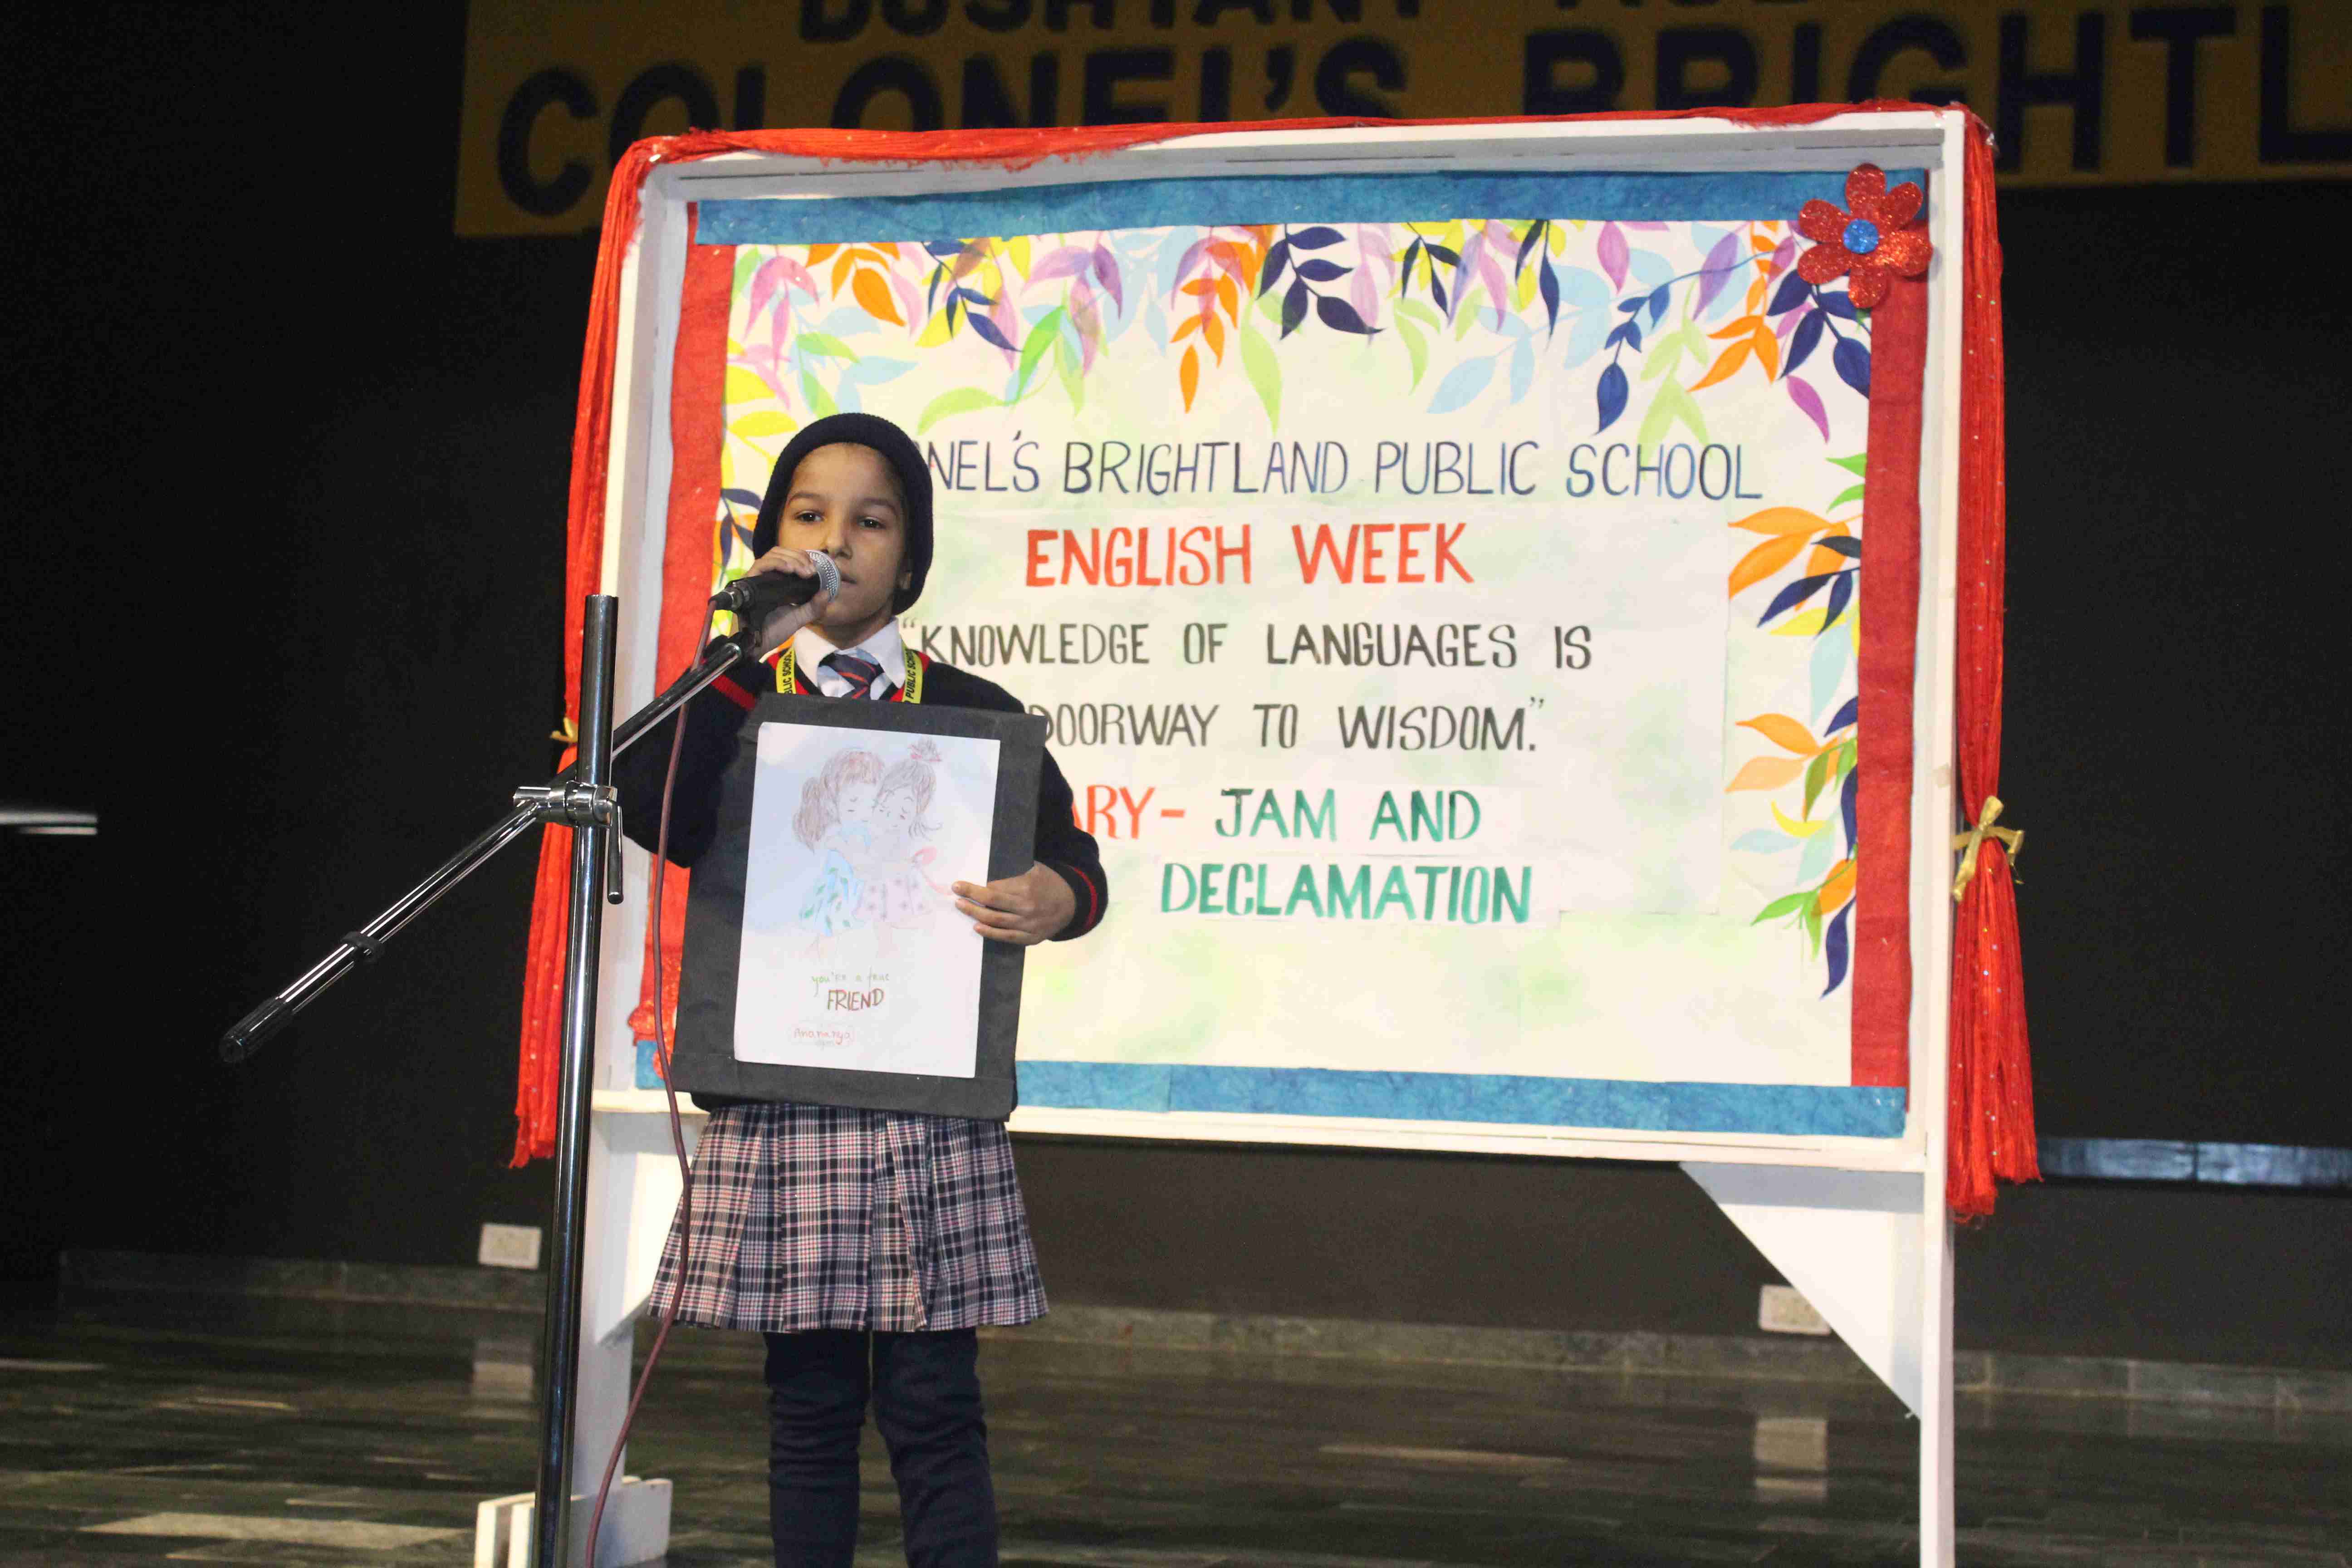 COLONEL'S BRIGHTL
NEL'S BRIGHTLAND PUBLIC SCHOOL
ENGLISH WEEK
"KNOWLEDGE OF LANGUAGES IS
DOORWAY TO WISDOM."
ARY- JAM AND
DECLAMATION
PUBLIC SCHOOL
you're a true
FRIEND